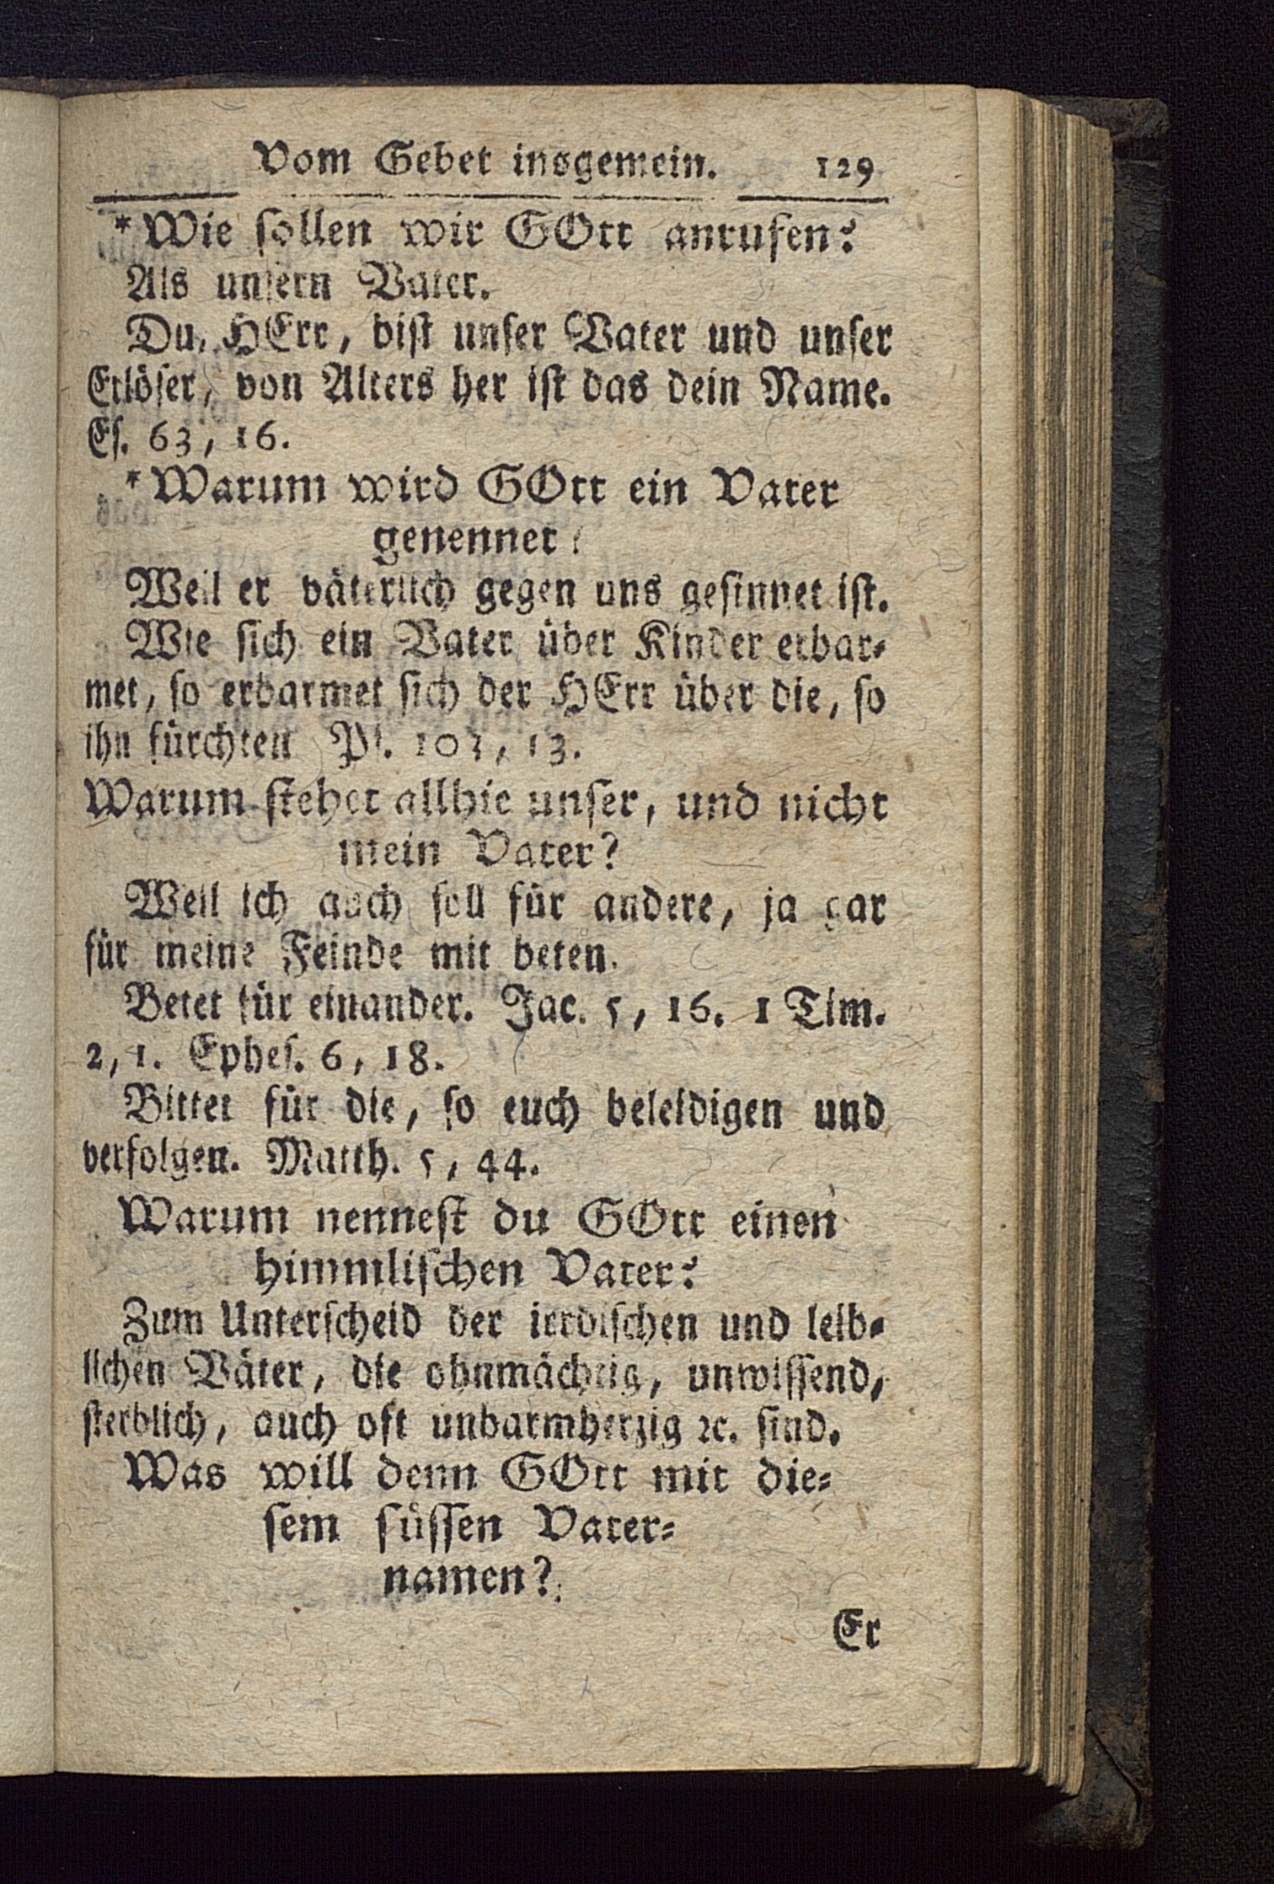 Vom Gebet insgemein. 129
*Wie sollen wir GOtt anrufen?
Als unsern Vater.
Du, HErr, bist unser Vater und unser
Erlöser, von Alters her ist das dein Name.
Es. 63, 16.
*Warum wird GOtt ein Vater
genennet?
Weil er väterlich gegen uns gesinnet ist.
Wie sich ein Vater über Kinder erbar-
met, so erbarmet sich der HErr über die, so
ihn fürchten Ps. 103, 13.
Warum stehet allhie unser, und nicht
mein Vater?
Weil ich auch soll für andere, ja gar
für meine Feinde mit beten.
Betet für einander. Jac. 5, 16. 1 Tim.
2, 1. Ephes. 6, 18.
Bittet für die, so euch beleidigen und
verfolgen. Matth. 5, 44.
Warum nennest du GOtt einen
himmlischen Vater?
Zum Unterscheid der irrdischen und leib-
lichen Väter, die ohnmächtig, unwissend,
sterblich, auch oft unbarmherzig ꝛc. sind.
Was will denn GOtt mit die-
sem süssen Vater-
namen?
Er